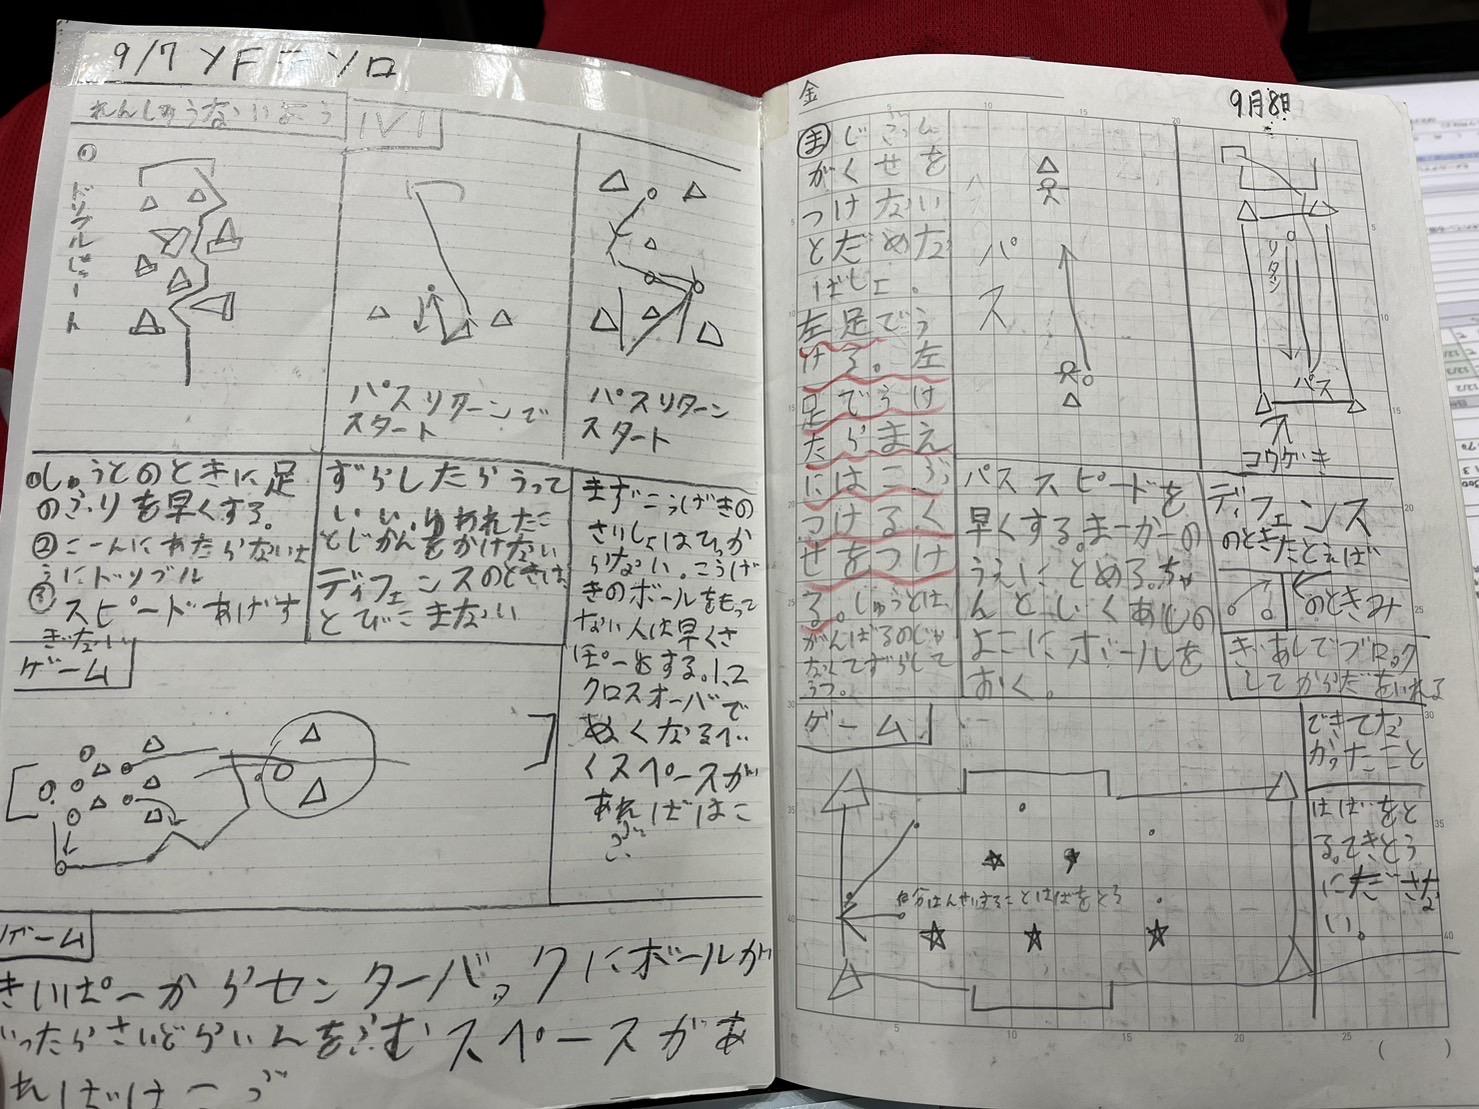 9/7 YFニソロ
れんしゅうないよう
1V1
①
ドリブルじゅート
パスリターンで
スタート
パスリターン
スタート
①しゅうとのときに足
のふりを早くする。
②こーんにあたらないよ
うにドリブル
③スピードあげす
ぎない
ずらしたらうって
いい。
とじかんをかけない
ディフェンスのときは、
とびこまない
まずこうげきの
さいしょはひっか
らない。こうげ
きのボールをもって
ない人は早くさ
ぽーとする。1、2
クロスオーバで
ぬくなるべ
くスペースが
あればはこ
ぶ
ゲーム
ゲーム
きいぱーからセンターバックにボールが
いったらさいどらいんをふむスペースがあ
ればはこぶ
金
9月8日
がくせを
つけない
とだめだ
左足でう
ける。左
足でうけ
たらまえ
にはこぶ
つけるく
せをつけ
る。しゅうとは、
がんばるのじゃ
なくてずらして
うつ。
パス
パススピードを
早くする。まーかーの
うえにとめる。ちゃ
んとじくあしの
よこにボールを
おく。
リタン
パス
コウゲキ
ディフェンス
のときたとえば
のときみ
ぎあしでブロック
してからだをいれる
ゲーム
自分はんせいすることははばをとる
できてな
かったこと
はばをと
る。てきとう
にださな
い。